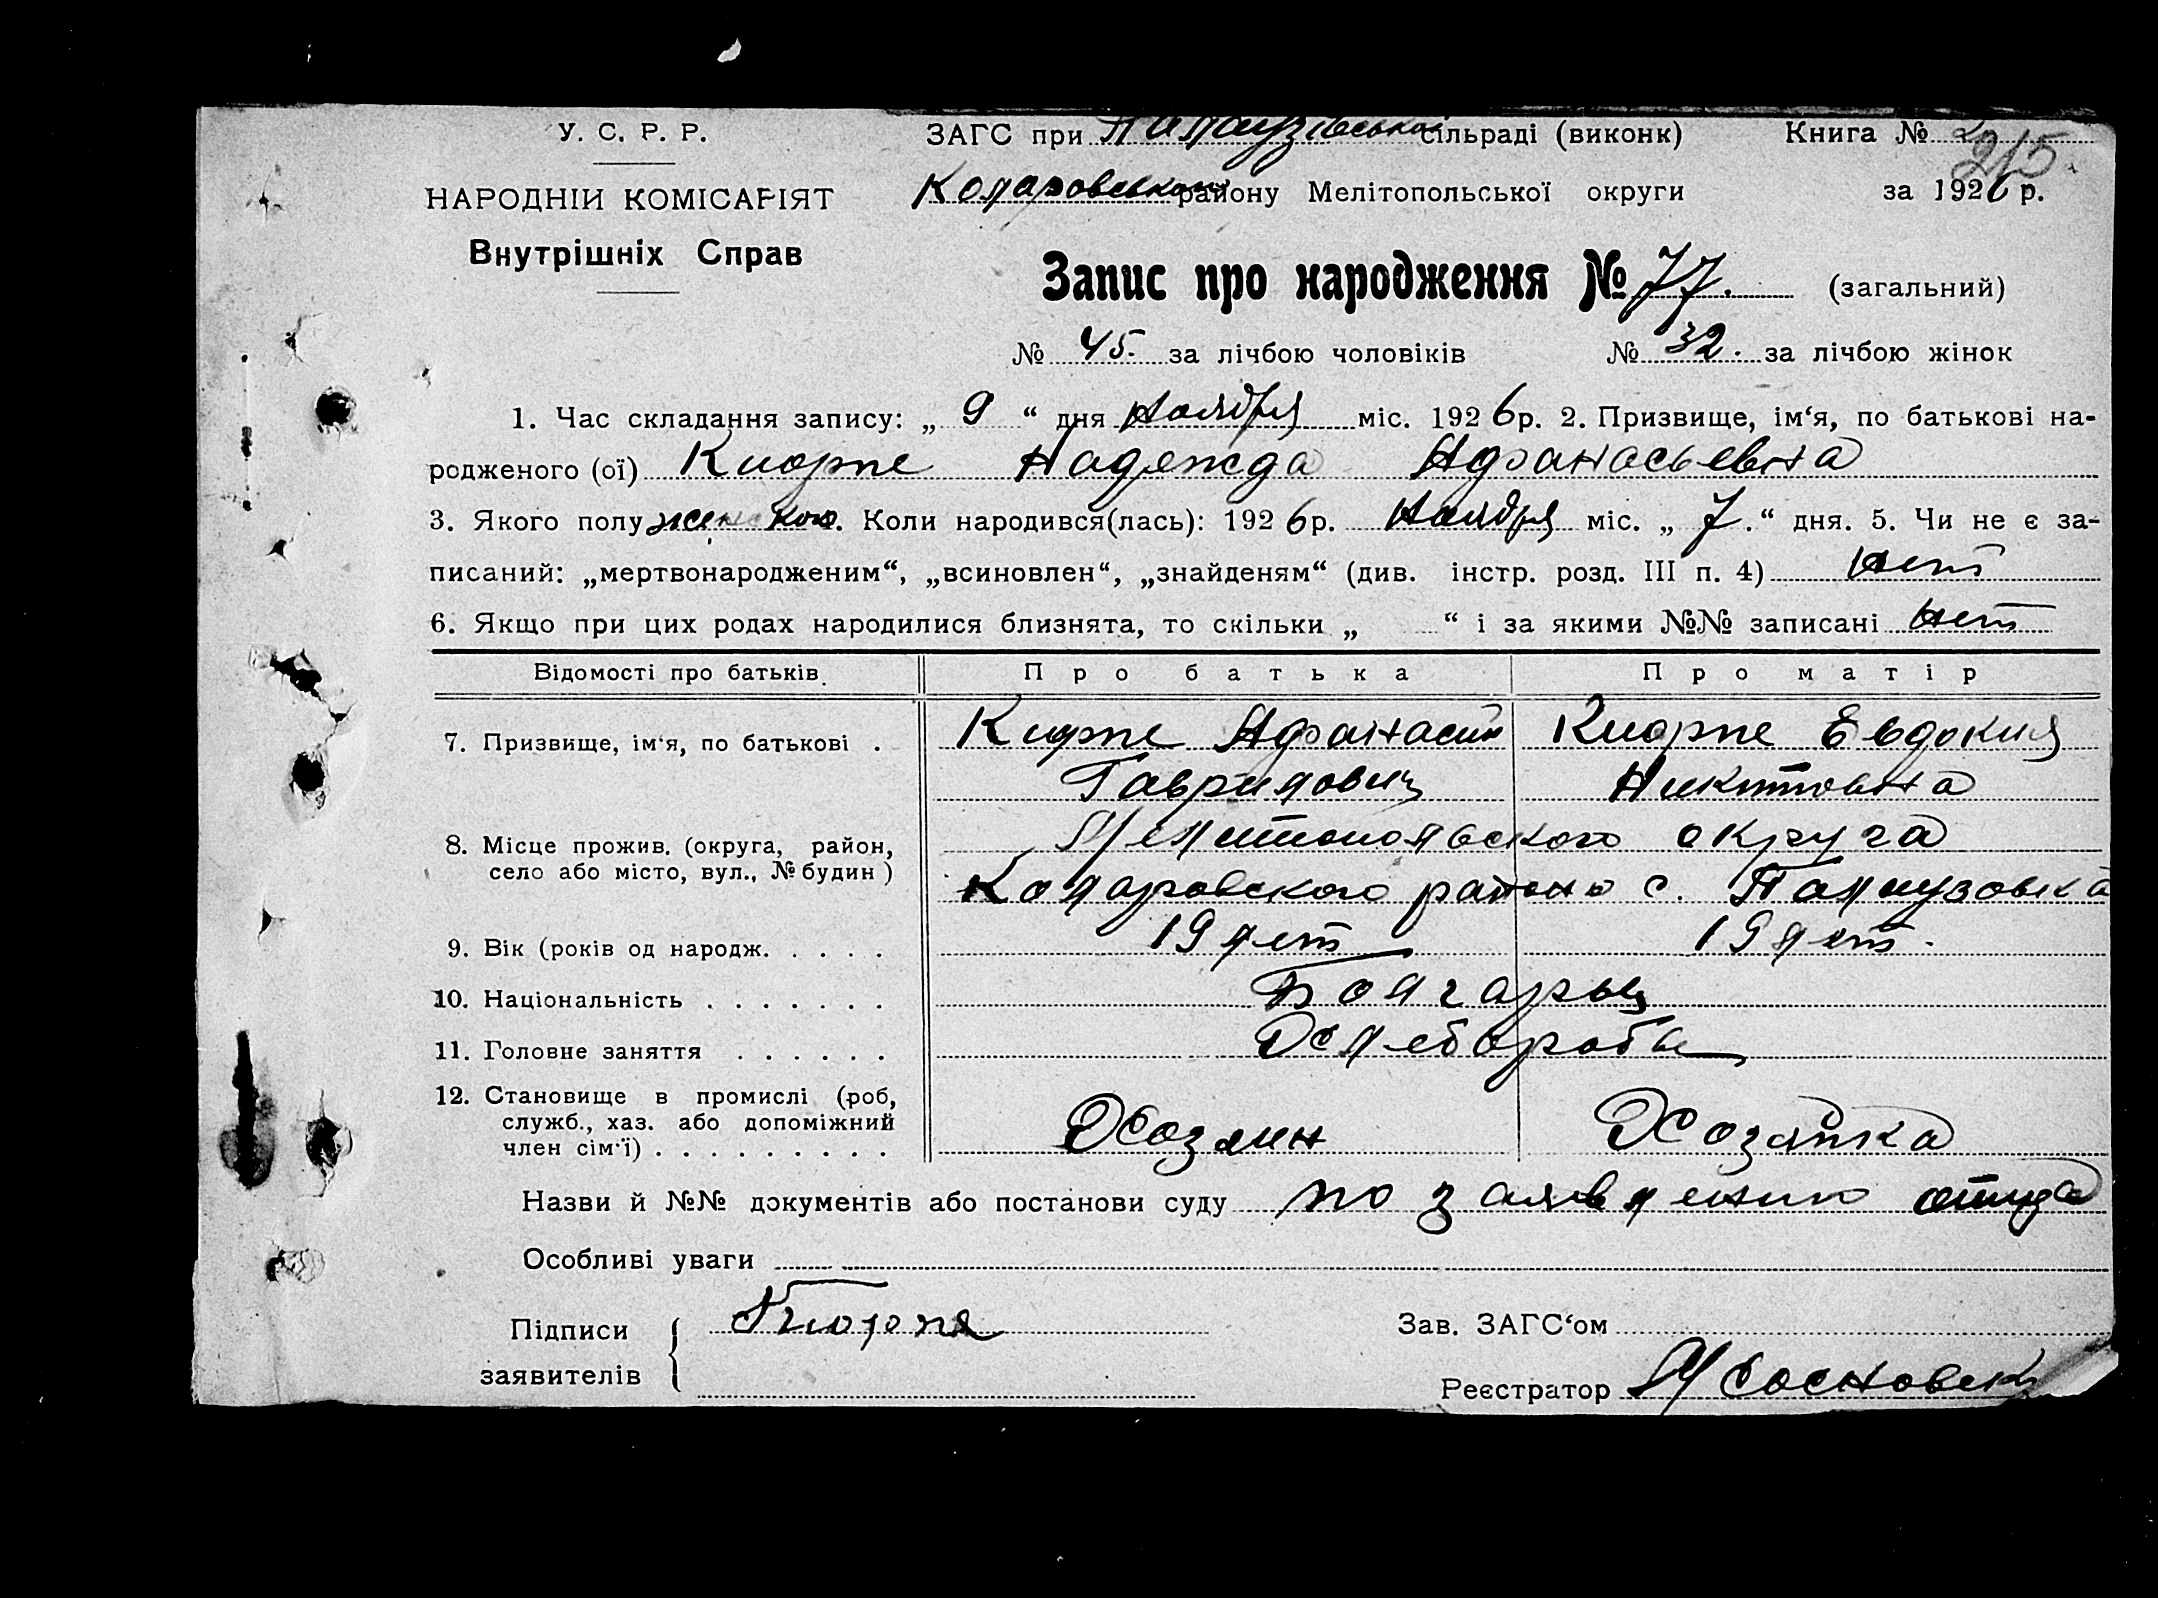 У. С. Р. Р.
НАРОДНІЙ КОМІСАРІЯТ
Внутрішніх Справ
ЗАГС при Палаузівської сільраді (виконк) Книга №
215
Коларовского району Мелітопольської округи за 1926 р.
Запис про народження № 77. (загальний)
№ 45. за лічбою чоловіків № 32. за лічбою жінок
1. Час складання запису: „ 9 “ дня Ноября міс. 1926 р. 2. Призвище, ім‘я, по батькові на-
родженого (ої) Кюрпе Надежда Афанасьевна
3. Якого полу женского. Коли народився(лась): 1926 р. Ноября міс. „ 7.“ дня. 5. Чи не є за-
писаний: „мертвонародженим“, „всиновлен“, „знайденям“ (див. інстр. розд. III п. 4) Нет
6. Якщо при цих родах народилися близнята, то скільки „ “ і за якими №№ записані Нет
Відомості про батьків. Про батька Про матір
7. Призвище, ім‘я, по батькові . Кюрпе Афанасий Кюрпе Евдокия
Гаврилович Никитовна
8. Місце прожив. (округа, район, село або місто, вул., № будин ) Мелитопольского округа
Коларовского района с. Палаузовка
9. Вік (років од народж. . . . . 19 лет 19 лет.
10. Національність . . . . . . . Болгары
11. Головне заняття . . . . . . Хлеборобы
12. Становище в промислі (роб,
служб., хаз. або допоміжний
член сім‘ї) . . . . . . . . . Хозяин Хозяйка
Назви й №№ документів або постанови суду по заявлению отца
Особливі уваги
Підписи заявителів Кюрпя
Зав. ЗАГС‘ом
Реєстратор